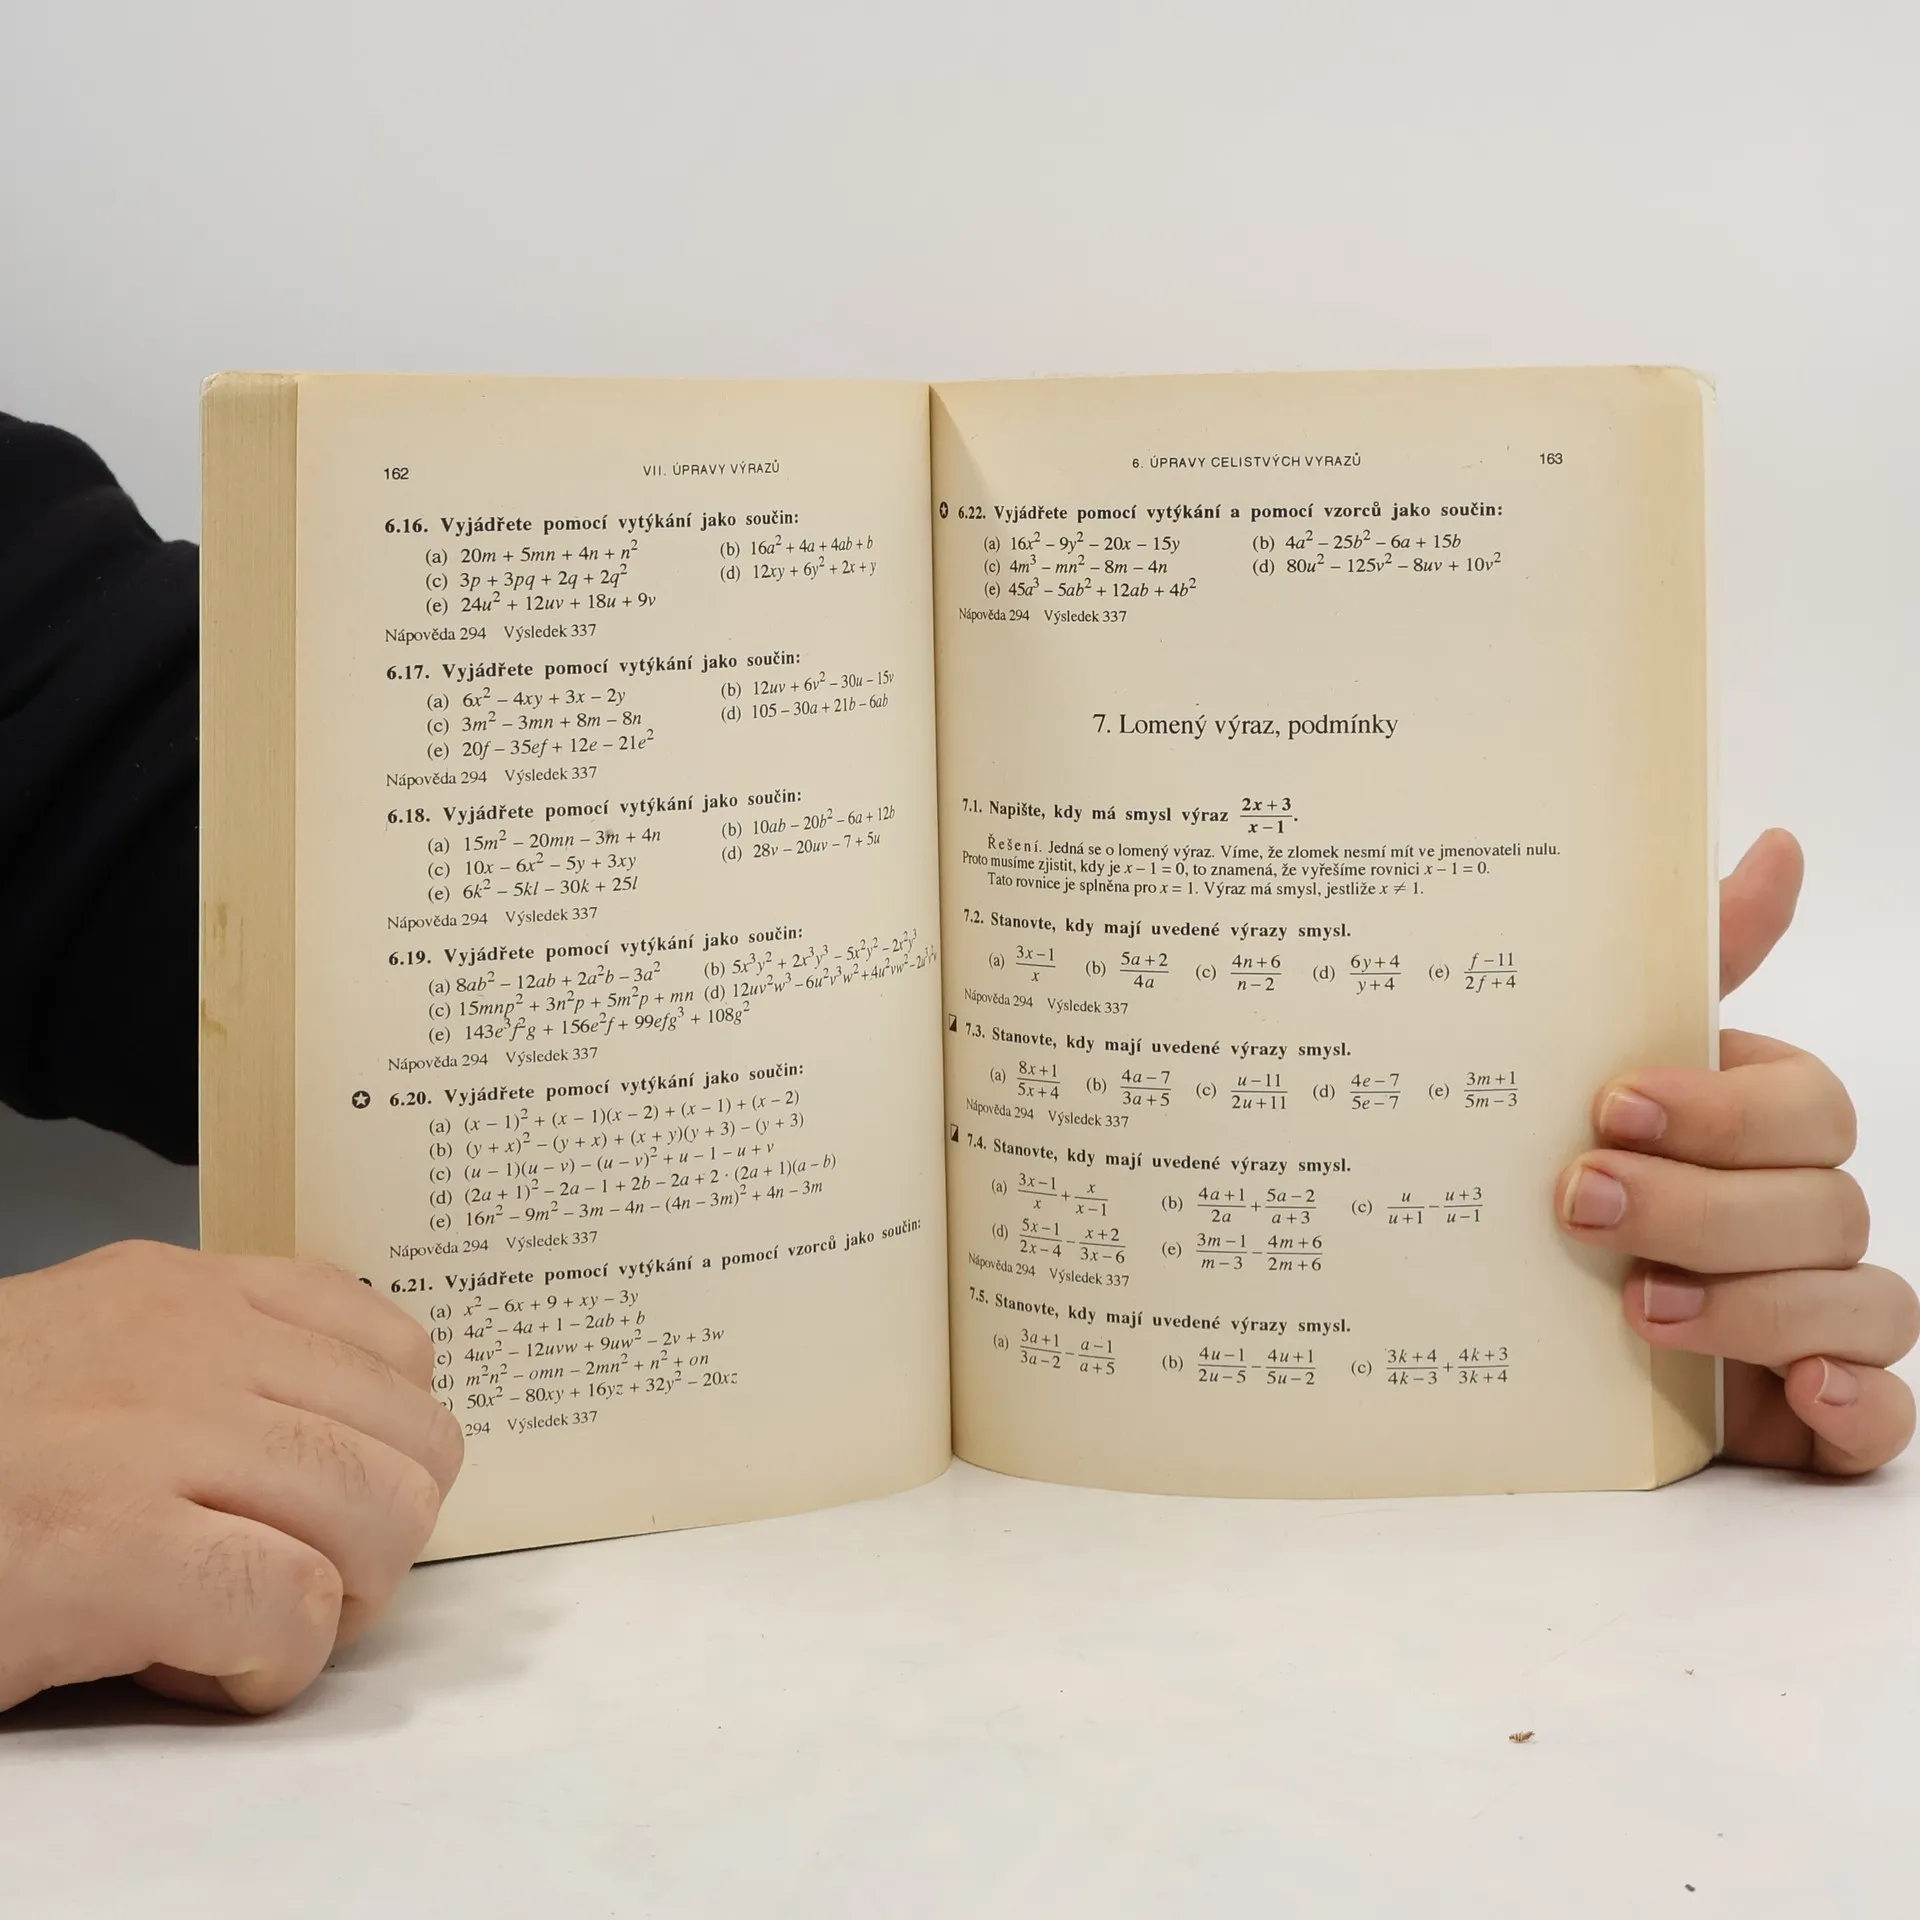 162
VII. ÚPRAVY VÝRAZŮ
6.16. Vyjádřete pomocí vytýkání jako součin:
(a) 20m + 5mn + 4n + n² (b) 16a² + 4a + 4ab + b
(c) 3p + 3pq + 2q + 2q² (d) 12xy + 6y² + 2x + y
(e) 24u² + 12uv + 18u + 9v
Nápověda 294 Výsledek 337
6.17. Vyjádřete pomocí vytýkání jako součin:
(a) 6x² – 4xy + 3x – 2y (b) 12uv + 6v² – 30u – 15v
(c) 3m² – 3mn + 8m – 8n (d) 105 – 30a + 21b – 6ab
(e) 20f – 35ef + 12e – 21e²
Nápověda 294 Výsledek 337
6.18. Vyjádřete pomocí vytýkání jako součin:
(a) 15m² – 20mn – 3m + 4n (b) 10ab – 20b² – 6a + 12b
(c) 10x – 6x² – 5y + 3xy (d) 28v – 20uv – 7 + 5u
(e) 6k² – 5kl – 30k + 25l
Nápověda 294 Výsledek 337
6.19. Vyjádřete pomocí vytýkání jako součin:
(a) 8ab² – 12ab + 2a²b – 3a² (b) 5x³y² + 2x³y³ – 5x²y² – 2x²y³
(c) 15mnp² + 3n²p + 5m²p + mn (d) 12uv²w³ – 6u²v³w² + 4u²vw²
(e) 143e³f²g + 156e²f + 99efg³ + 108g²
Nápověda 294 Výsledek 337
6.20. Vyjádřete pomocí vytýkání jako součin:
(a) (x – 1)² + (x – 1)(x – 2) + (x – 1) + (x – 2)
(b) (y + x)² – (y + x) + (x + y)(y + 3) – (y + 3)
(c) (u – 1)(u – v) – (u – v)² + u – 1 – u + v
(d) (2a + 1)² – 2a – 1 + 2b – 2a + 2 · (2a + 1)(a – b)
(e) 16n² – 9m² – 3m – 4n – (4n – 3m)² + 4n – 3m
Nápověda 294 Výsledek 337
6.21. Vyjádřete pomocí vytýkání a pomocí vzorců jako součin:
(a) x² – 6x + 9 + xy – 3y
(b) 4a² – 4a + 1 – 2ab + b
c) 4uv² – 12uvw + 9uw² – 2v + 3w
(d) m²n² – omn – 2mn² + n² + on
) 50x² – 80xy + 16yz + 32y² – 20xz
294 Výsledek 337
6. ÚPRAVY CELISTVÝCH VYRAZŮ
163
6.22. Vyjádřete pomocí vytýkání a pomocí vzorců jako součin:
(a) 16x² – 9y² – 20x – 15y (b) 4a² – 25b² – 6a + 15b
(c) 4m³ – mn² – 8m – 4n (d) 80u² – 125v² – 8uv + 10v²
(e) 45a³ – 5ab² + 12ab + 4b²
Nápověda 294 Výsledek 337
7. Lomený výraz, podmínky
7.1. Napište, kdy má smysl výraz (2x + 3)/(x – 1).
Řešení. Jedná se o lomený výraz. Víme, že zlomek nesmí mít ve jmenovateli nulu.
Proto musíme zjistit, kdy je x – 1 = 0, to znamená, že vyřešíme rovnici x – 1 = 0.
Tato rovnice je splněna pro x = 1. Výraz má smysl, jestliže x ≠ 1.
7.2. Stanovte, kdy mají uvedené výrazy smysl.
(a) (3x – 1)/x (b) (5a + 2)/4a (c) (4n + 6)/(n – 2) (d) (6y + 4)/(y + 4) (e) (f – 11)/(2f + 4)
Nápověda 294 Výsledek 337
7.3. Stanovte, kdy mají uvedené výrazy smysl.
(a) (8x + 1)/(5x + 4) (b) (4a – 7)/(3a + 5) (c) (u – 11)/(2u + 11) (d) (4e – 7)/(5e – 7) (e) (3m + 1)/(5m – 3)
Nápověda 294 Výsledek 337
7.4. Stanovte, kdy mají uvedené výrazy smysl.
(a) (3x – 1)/x + x/(x – 1) (b) (4a + 1)/2a + (5a – 2)/(a + 3) (c) u/(u + 1) – (u + 3)/(u – 1)
(d) (5x – 1)/(2x – 4) – (x + 2)/(3x – 6) (e) (3m – 1)/(m – 3) – (4m + 6)/(2m + 6)
Nápověda 294 Výsledek 337
7.5. Stanovte, kdy mají uvedené výrazy smysl.
(a) (3a + 1)/(3a – 2) – (a – 1)/(a + 5) (b) (4u – 1)/(2u – 5) – (4u + 1)/(5u – 2) (c) (3k + 4)/(4k – 3) + (4k + 3)/(3k + 4)